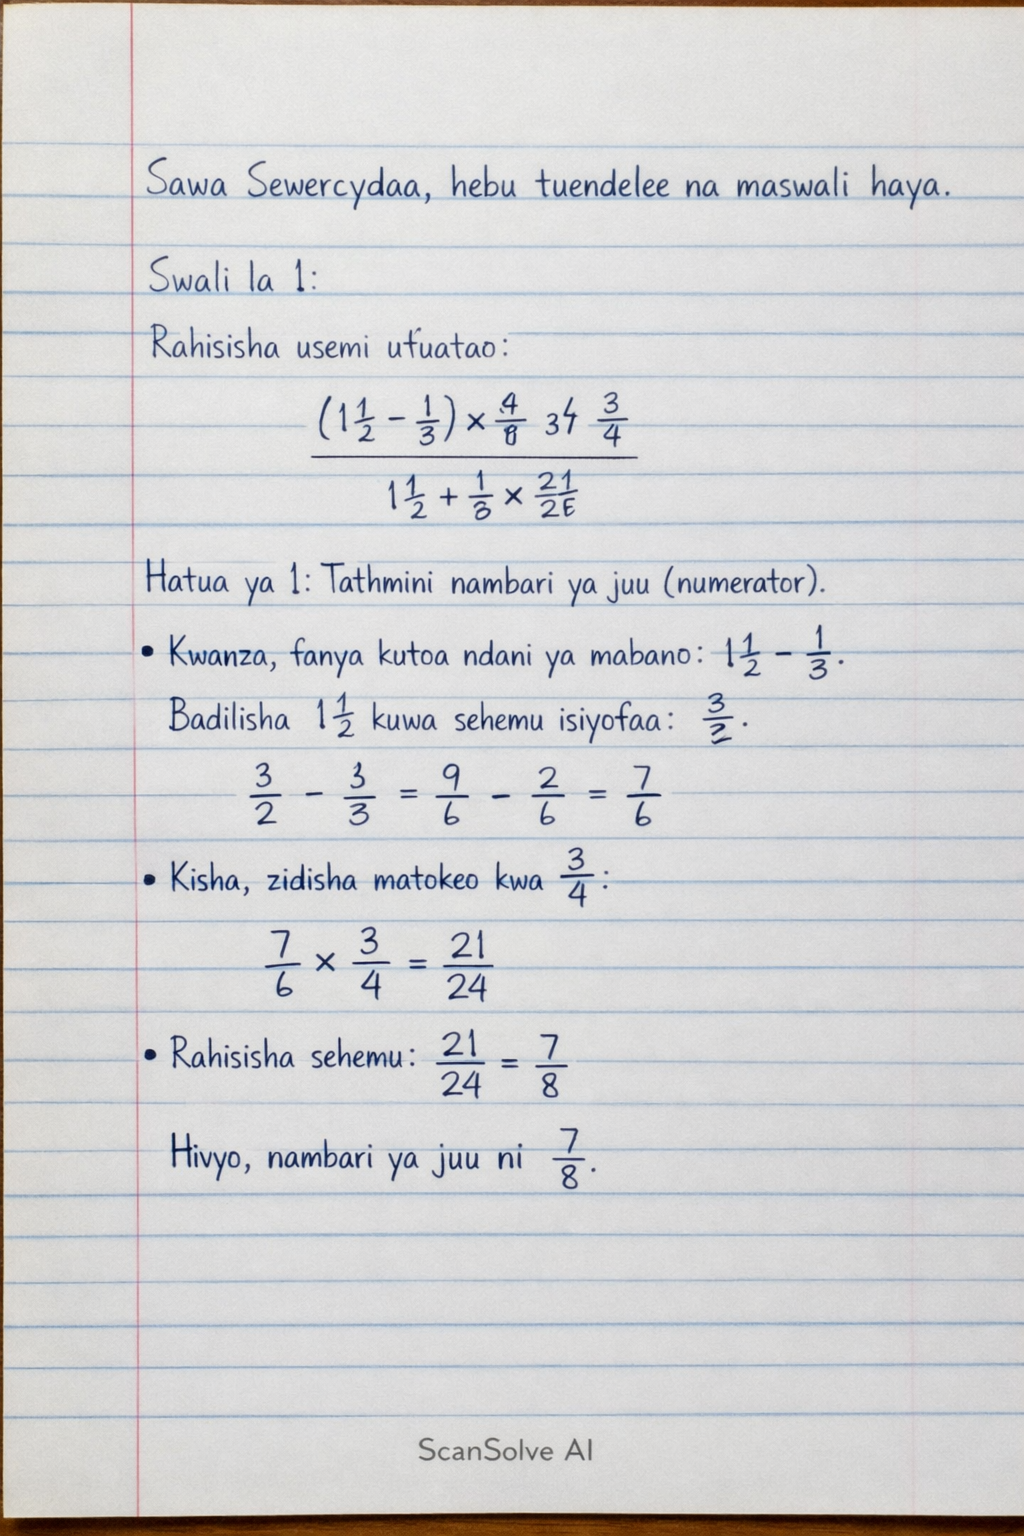 Sawa Sewercydaa, hebu tuendelee na maswali haya.
Swali la 1:
Rahisisha usemi ufuatao:
(1 1/2 - 1/3) × 4/8 34 3/4
1 1/2 + 1/3 × 21/2E
Hatua ya 1: Tathmini nambari ya juu (numerator).
• Kwanza, fanya kutoa ndani ya mabano: 1 1/2 - 1/3.
Badilisha 1 1/2 kuwa sehemu isiyofaa: 3/2.
3/2 - 3/3 = 9/6 - 2/6 = 7/6
• Kisha, zidisha matokeo kwa 3/4:
7/6 × 3/4 = 21/24
• Rahisisha sehemu: 21/24 = 7/8
Hivyo, nambari ya juu ni 7/8.
ScanSolve AI